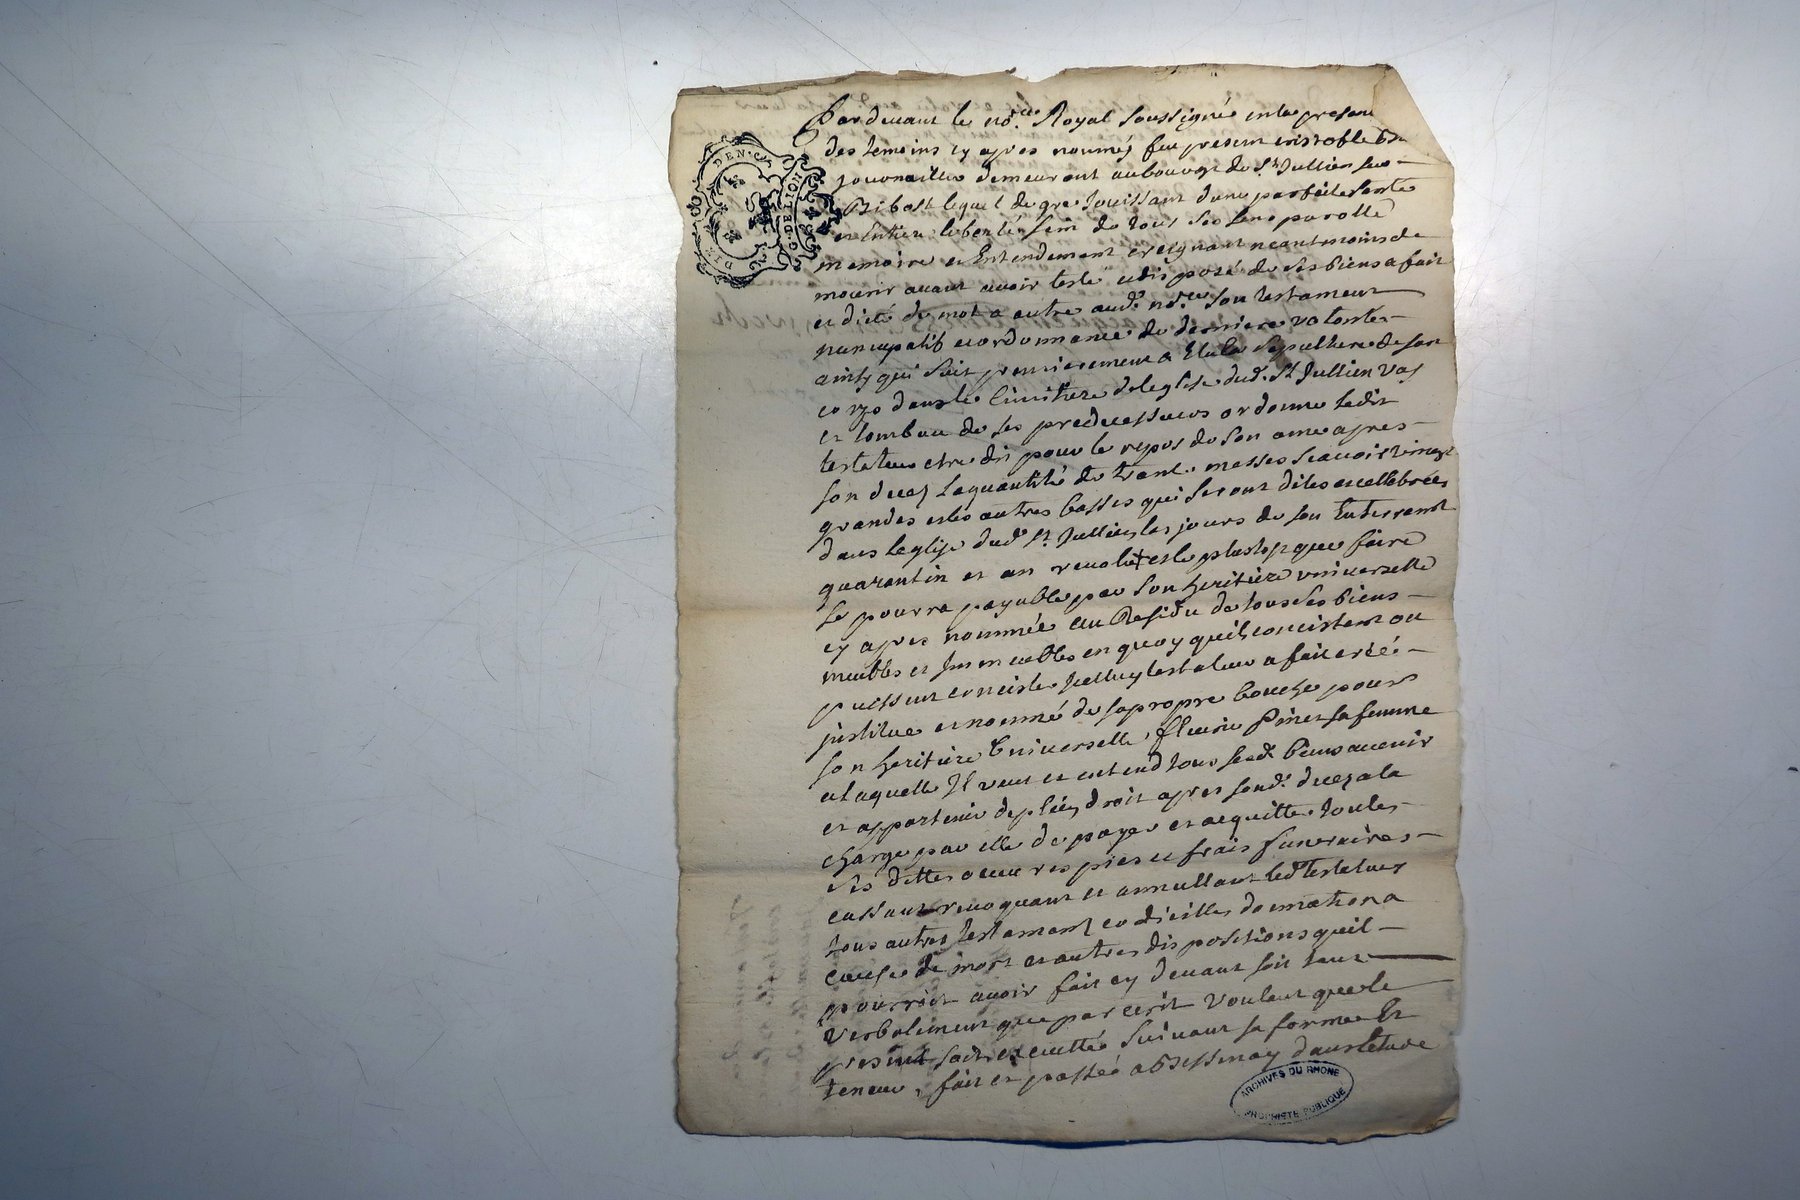 Pardevant le no.re Royal soussigné en la presen
des temoins cy apres nommés fut present cristofle
journaillier demeurant au bourg de St Jullien sur
Bibost lequel de gre Jouissant d'une parfaite santé
et entiere liberté sain de tous ses sens parolle
memoire et Entendement creignant neantmoins de
mourir avant avoir testé et disposé de ses biens a fait
et dicté de mot a autre aud. no.re son testament
nuncupatif et ordonnance de derniere volonté
ainsy qui suit premierement a Elu la sepulture de son
corps dans le cimitiere de leglise dud. St Jullien vas
et tombeau de ses predecessurs ordonne ledit
testateur etre dit pour le repos de son ame apres
son deces la quantité de trante messes scavoir vingt
grandes et les autres basses qui seront dites et cellebrées
dans leglise dud. St Jullien les jours de son Enterremt
quarantin et an revolu et le plustot que faire
se pourra payable par son heritiere universelle
cy apres nommée au Residu de tous ses biens
meubles et Immeubles en quoy quils concistent ou
puissent concister Icelluy testateur a fait créé
institue et nommé de sa propre bouche pour
son heritiere Universelle, fleurie Pinet sa femme
a laquelle Il veut et entend tous sesd. biens avenir
et appartenir de plein droit apres sond. deces a la
charge par elle de payer et acquitter toutes
ses dettes œuvres pies et frais funeraires
cassant revoquant et annullant led. testateur
tous autres testament codicilles donnation a
cause de mort et autres dispositions quil
pourroit avoir fait cy devant soit tant
verbalement que par ecrit voulant que le
present soit executté suivant sa forme Et
teneur, fait et passé a Bessenay dans letude
DEN.C
G. DE LION
ARCHIVES DU RHONE
PROPRIETE PUBLIQUE